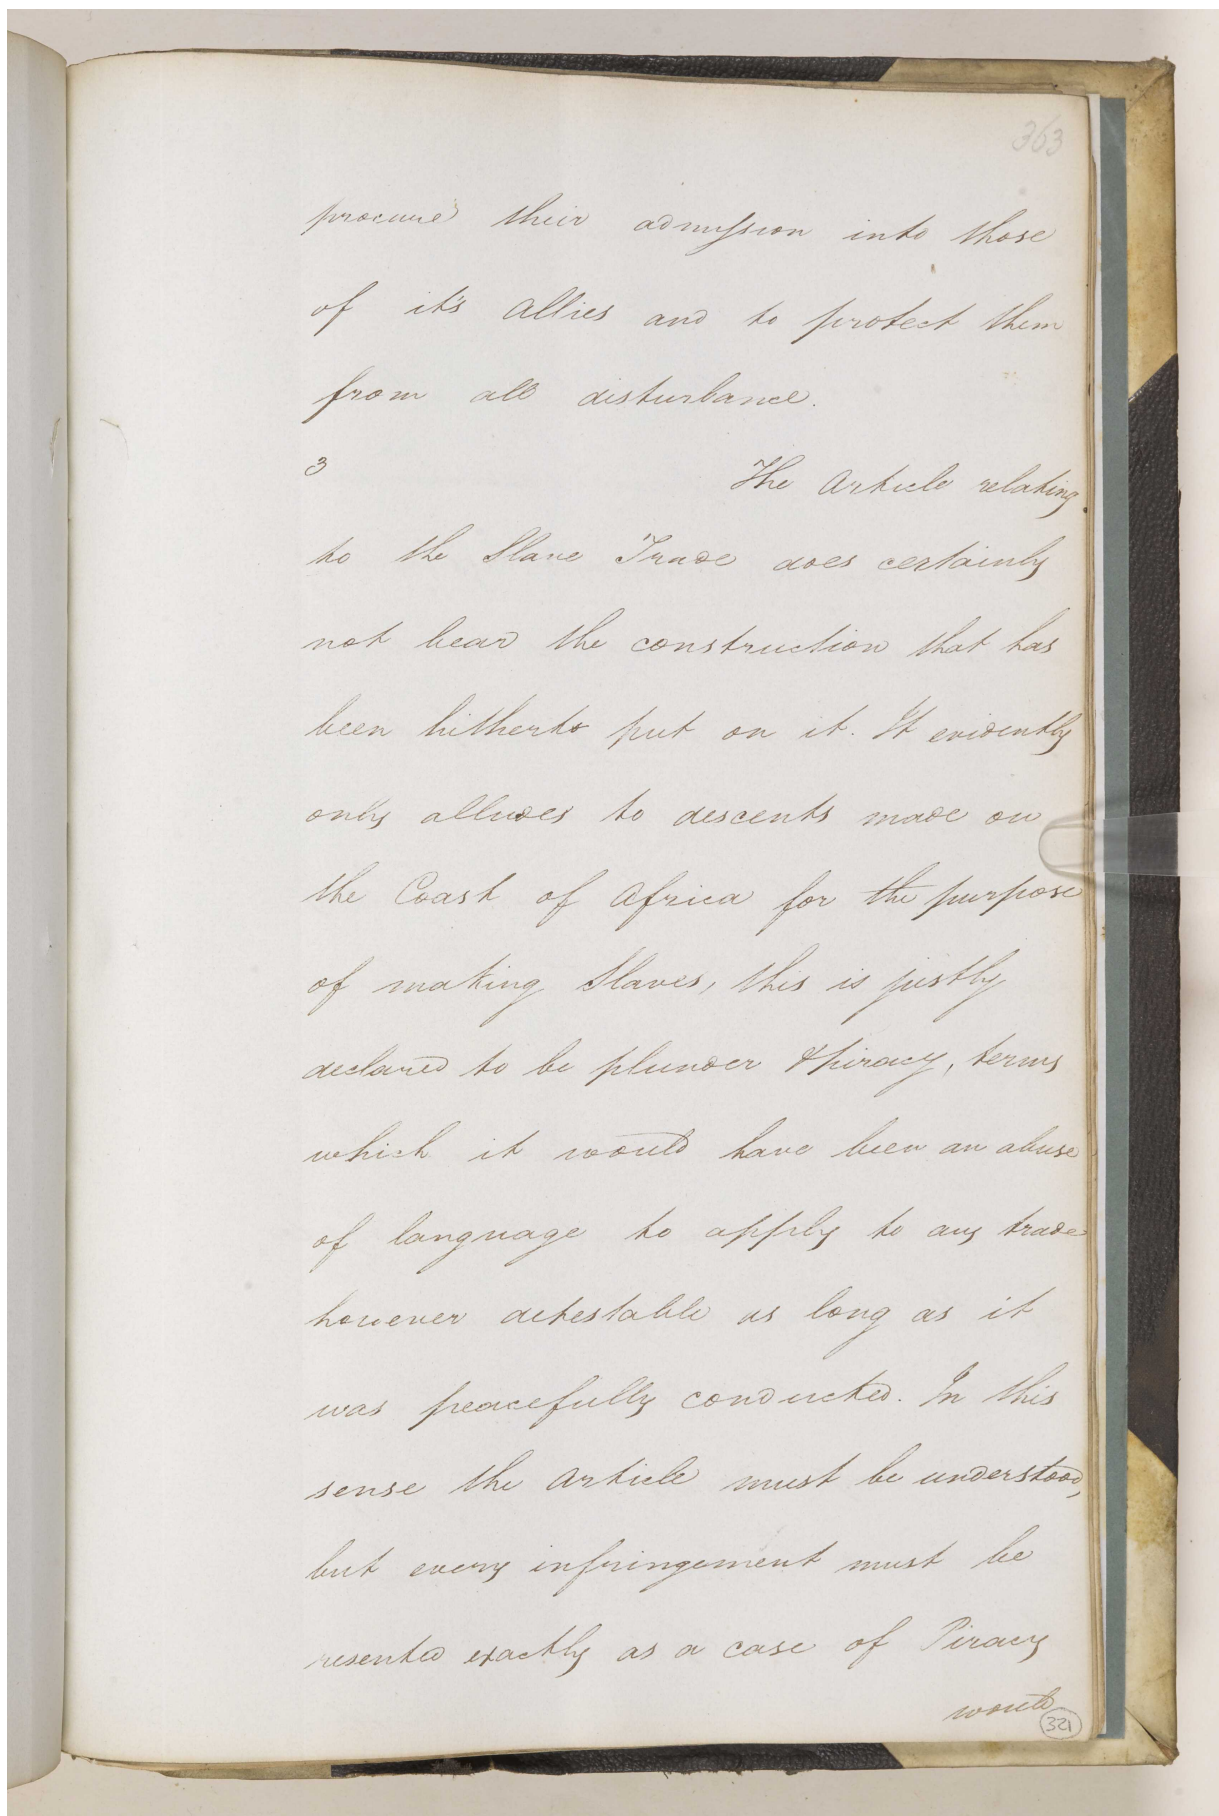 363
procure their admission into those
of it's Allies and to protect them
from all disturbance.
3 The Article relating
to the Slave Trade does certainly
not bear the construction that has
been hitherto put on it. It evidently
only alludes to descents made on
the Coast of Africa for the purpose
of making Slaves, this is justly
declared to be plunder & piracy, terms
which it would have been an abuse
of language to apply to any trade
however detestable as long as it
was peacefully conducted. In this
sense the Article must be understood,
but every infringement must be
resented exactly as a case of Piracy
would
321